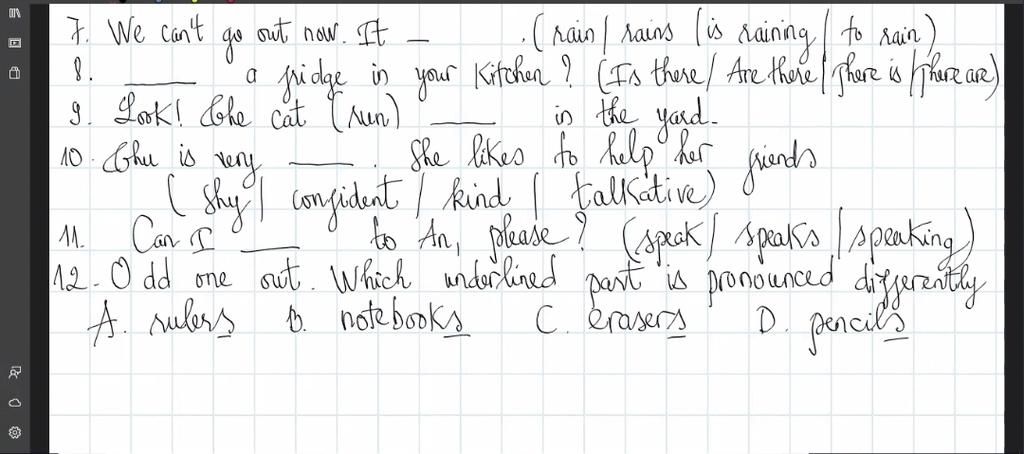 7. We can't go out now. It _ . (rain / rains / is raining / to rain)
8. ____ a fridge in your kitchen? (Is there / Are there / There is / There are)
9. Look! The cat (run) ____ in the yard.
10. Thu is very ____. She likes to help her friends
(shy / confident / kind / talkative)
11. Can I ____ to An, please? (speak / speaks / speaking)
12. Odd one out. Which underlined part is pronounced differently
A. rulers B. notebooks C. erasers D. pencils